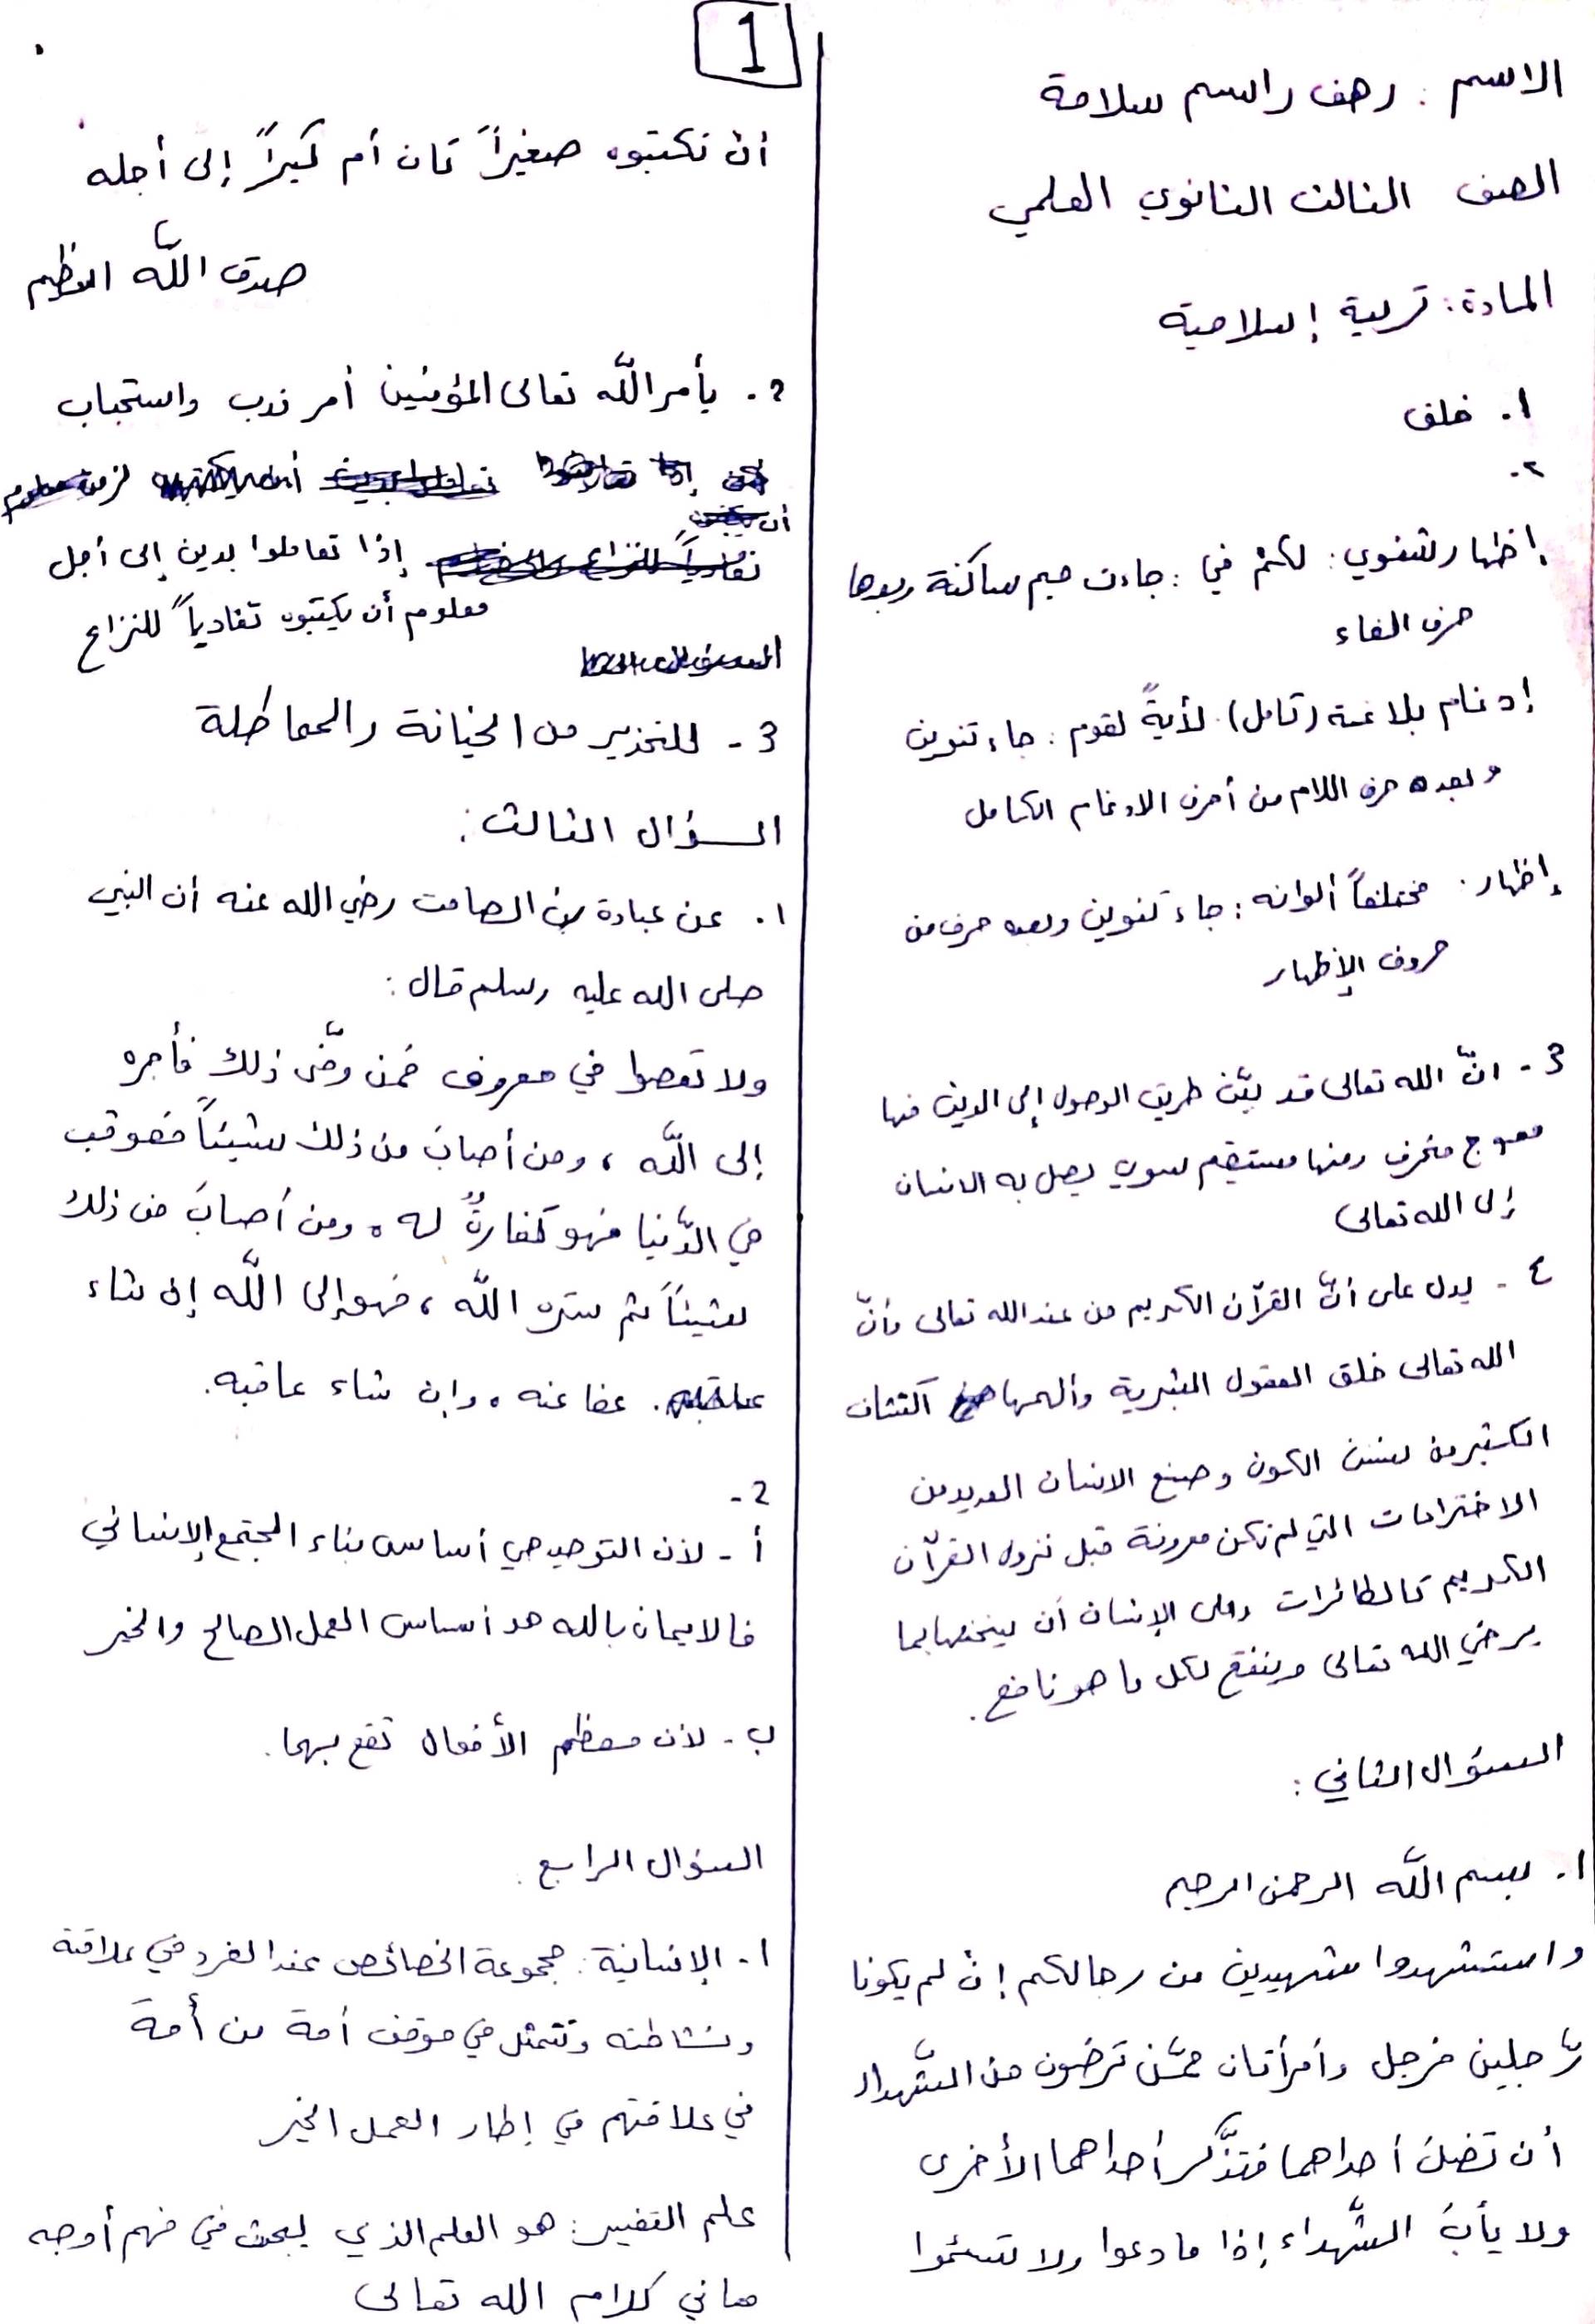 1
الاسم : رهف راسم سلامة
الصف الثالث الثانوي العلمي
المادة : تربية إسلامية
١. خلق
٢-
إظهار شفوي : لكم في : جاءت ميم ساكنة وبعدها
حرف الفاء
إدغام بلا غنة (كامل) لأيةً لقوم : جاء تنوين
وبعده حرف اللام من أحرف الادغام الكامل
إظهار : مختلفاً ألوانه : جاء تنوين وبعده حرف من
حروف الإظهار
3 - انّ الله تعالى قد بيّن طريق الوصول إلى الدين فمنها
معوج منحرف ومنها مستقيم سوي يصل به الانسان
إلى الله تعالى
٤ - يدل على أنّ القرآن الكريم من عند الله تعالى وأنّ
الله تعالى خلق العقول البشرية وألهمها اكتشاف
الكثير من سنن الكون وصنع الانسان العديد من
الاختراعات التي لم تكن معروفة قبل نزول القرآن
الكريم كالطائرات وعلى الإنسان أن بما
يرضي الله تعالى وينفع لكل ما هو نافع .
السؤال الثاني :
١. بسم اللّه الرحمن الرحيم
واستشهدوا شهيدين من رجالكم إن لم يكونا
رّجلين فرجل وأمرأتان ممّن ترضون من الشّهداء
أن تضلَ أحداهما فتذّكر أحداهما الأخرى
ولا يأبَ الشّهداء إذا ما دعوا ولا تسئموا
أن تكتبوه صغيراً كان أم كبيراً إلى أجله
صدق اللّه العظيم
2 . يأمر اللّه تعالى المؤمنين أمر ندب واستحباب
أن
إذا تعاملوا بدين إلى أجل
معلوم أن يكتبوه تفادياً للنزاع
3 - للتحذير من الخيانة والمماطلة
السؤال الثالث :
١. عن عبادة بن الصامت رضي الله عنه أن النبي
صلى الله عليه وسلم قال :
ولا تعصوا في معروف فمن وفّى ذلك فأجره
إلى اللّه ، ومن أصابَ من ذلك شيئاً فعوقب
في الدّنيا فهو كفارةٌ له ، ومن أصابَ من ذلك
شيئاً ثم ستره اللّه ، فهو إلى اللّه إن شاء
عفا عنه ، وإن شاء عاقبه .
2 -
أ - لأن التوحيد هي أساس بناء المجتمع الإنساني
فالايمان بالله هو أساس العمل الصالح والخير
ب - لأن معظم الأفعال تقع بهما .
السؤال الرابع .
١ - الإنسانية : مجموعة الخصائص عند الفرد في علاقته
ونشاطته وتتمثل في موقف أمة من أُمةَ
في علاقتهم في إطار العمل الخير
علم التفسير : هو العلم الذي يبحث في فهم أوجه
معاني كلام الله تعالى